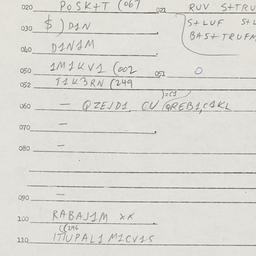 020 POSK+T (067 021 RUV S+TRU
S+LUF
030 $ ) D1N BAS+ TRUFM
040 D1N1M
050 1M1KV1 (002 051 0
052 T1K3RN (249
060 — QZEJD1, CV GREB1,C1KL
070 —
080 —
—
090
100 RABAJ1M XX
110 ITIUPAL1 M1CV1S